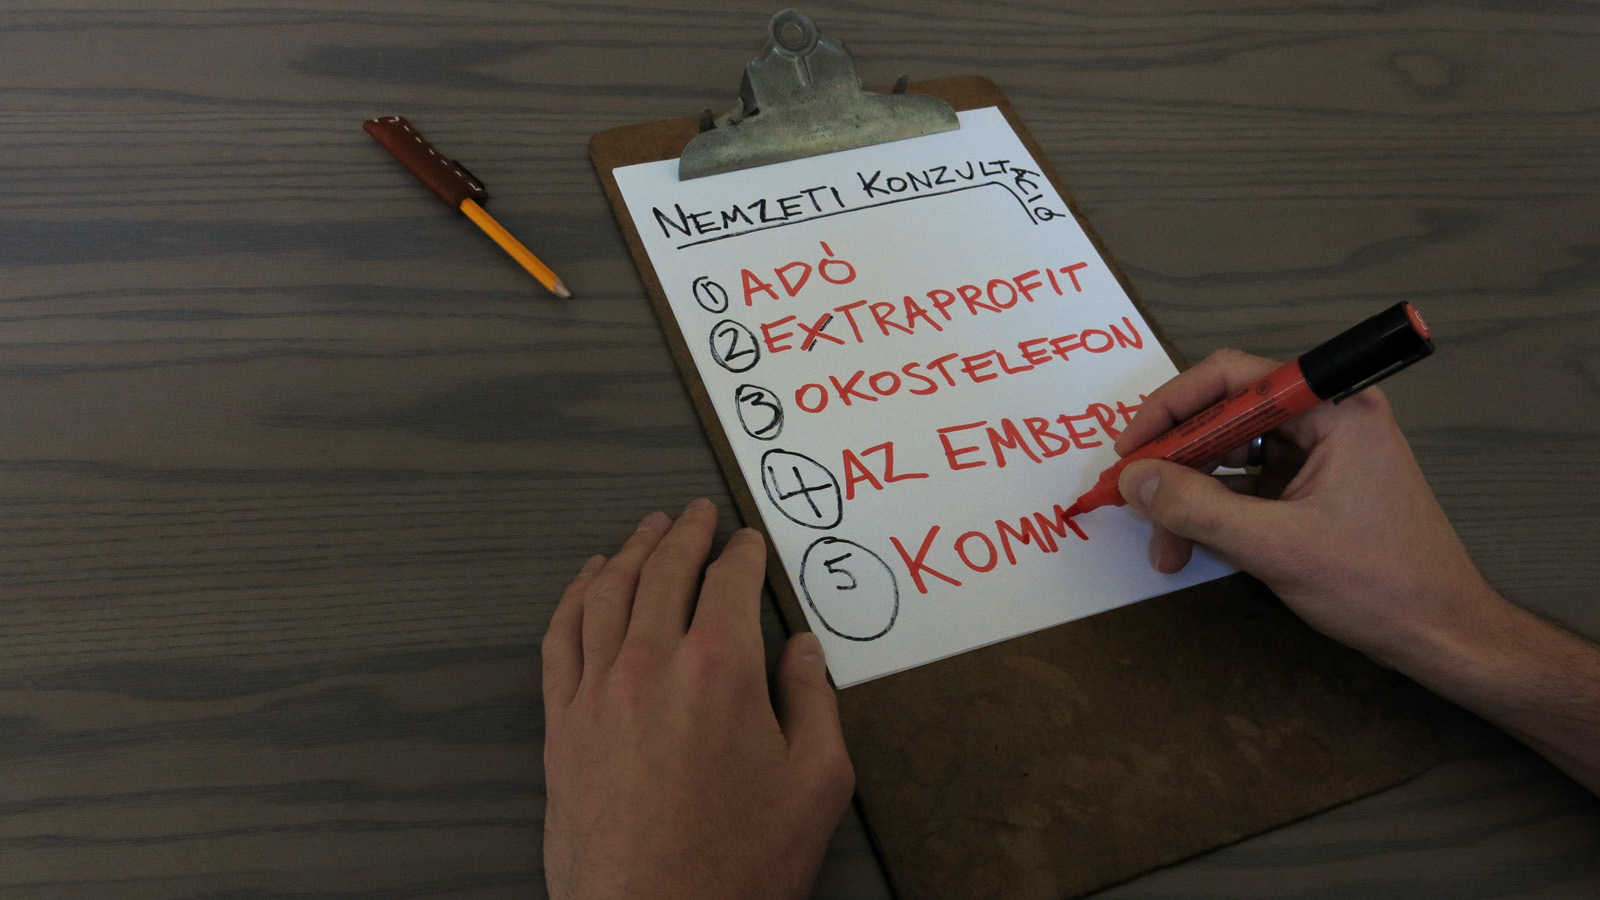 NEMZETI KONZULTÁCIÓ
1 ADÓ
2 EXTRAPROFIT
3 OKOSTELEFON
4 AZ
5 KOMM